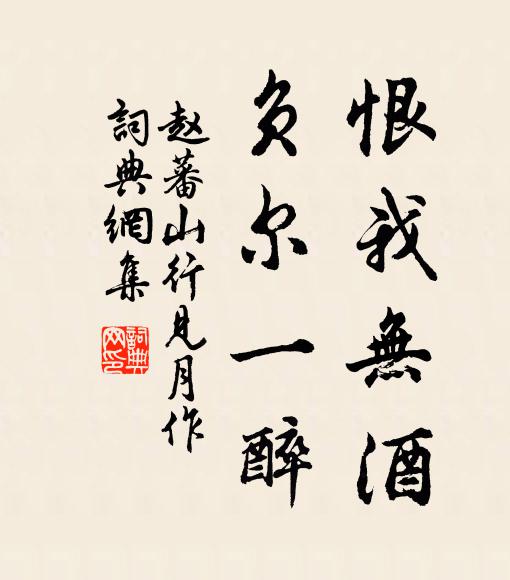 恨我無酒
负尔一醉
赵蕃山行見月作
詞典網集
詞典
网印